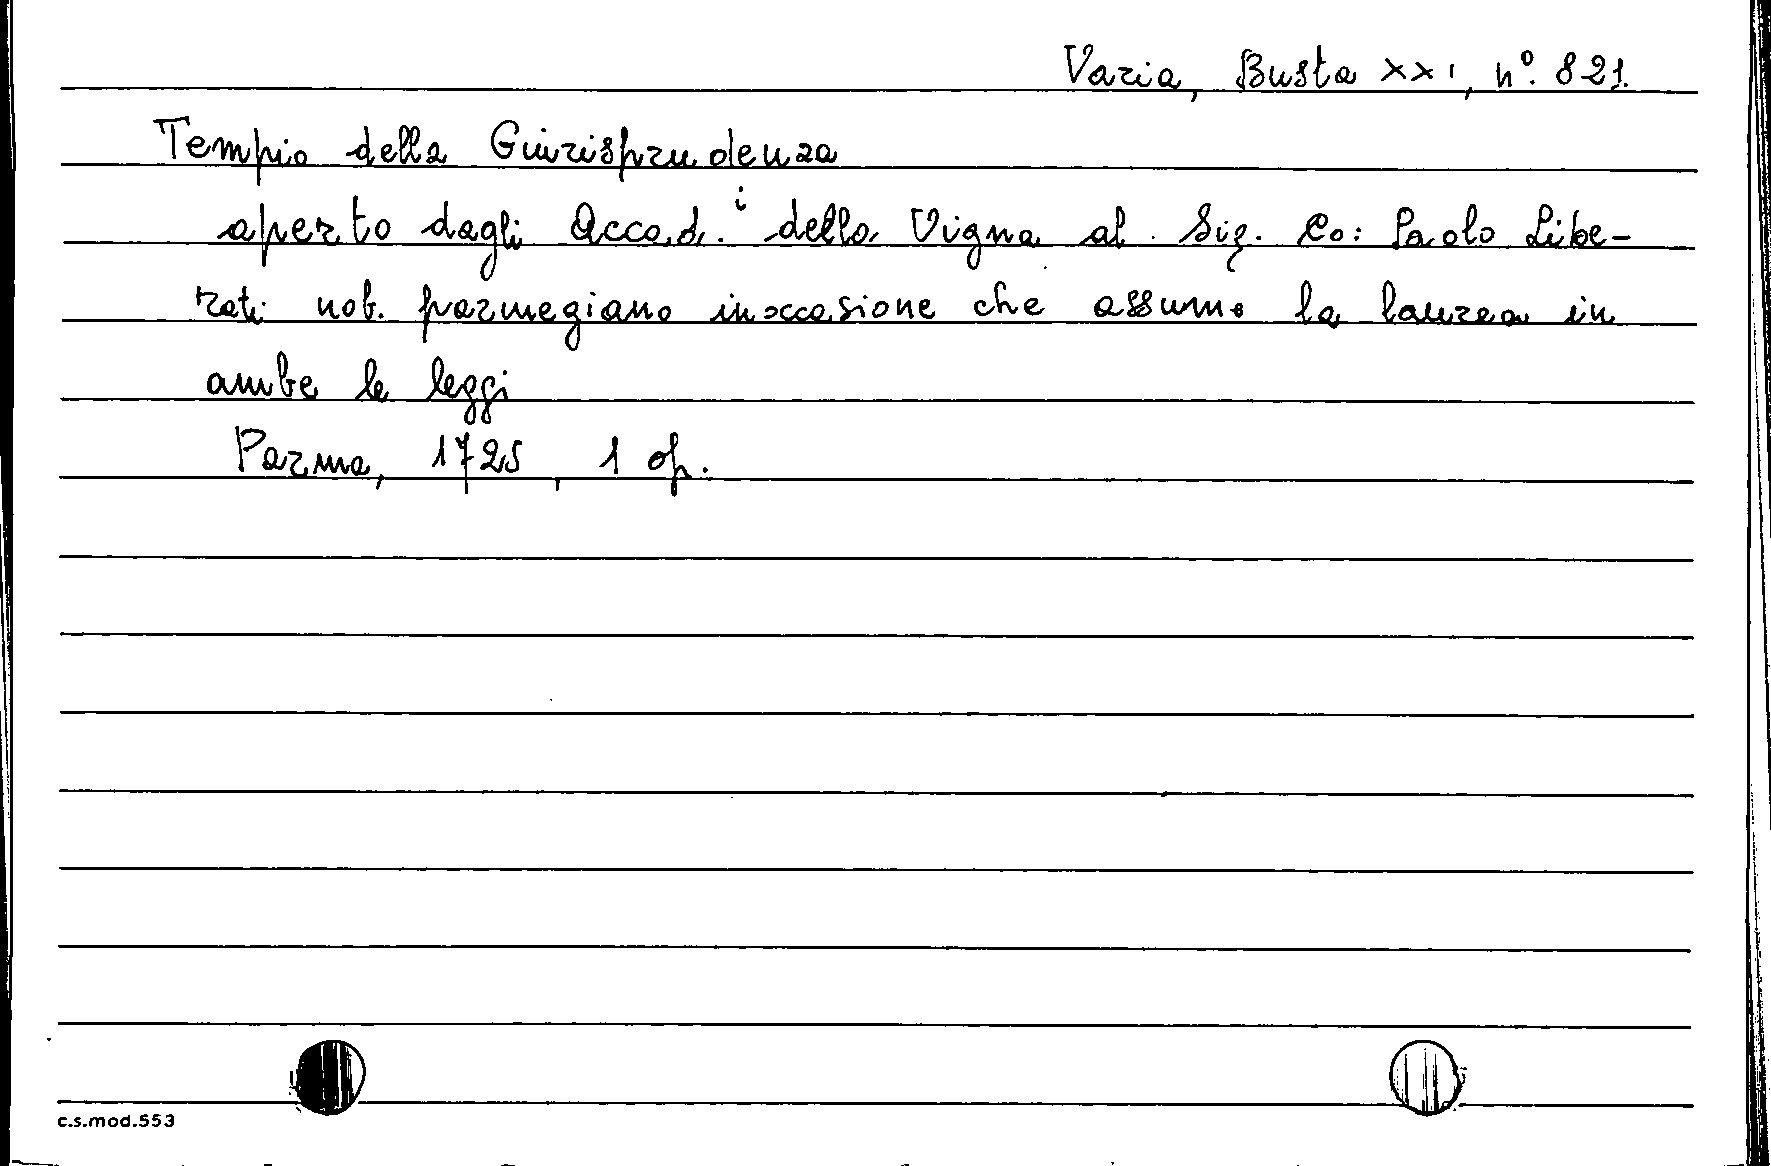 Varia, Busta XXI, n°. 821.
Tempio della Giurisprudenza
aperto dagli Accad.i della Vigna al Sig. Co: Paolo Libe-
rati nob. parmegiano in occasione che assume la laurea in
ambe le leggi
Parma, 1725, 1 op.
c.s.mod.553